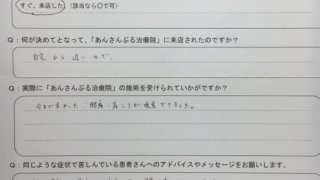 すぐ、来店した（該当なら○で可）
Q：何が決めてとなって、「あんさんぶる治療院」に来店されたのですか？
自宅から近いので.
Q：実際に「あんさんぶる治療院」の施術を受けられていかがですか？
腰痛・肩こりが改善できました。
Q：同じような症状で苦しんでいる患者さんへのアドバイスやメッセージをお願いします。